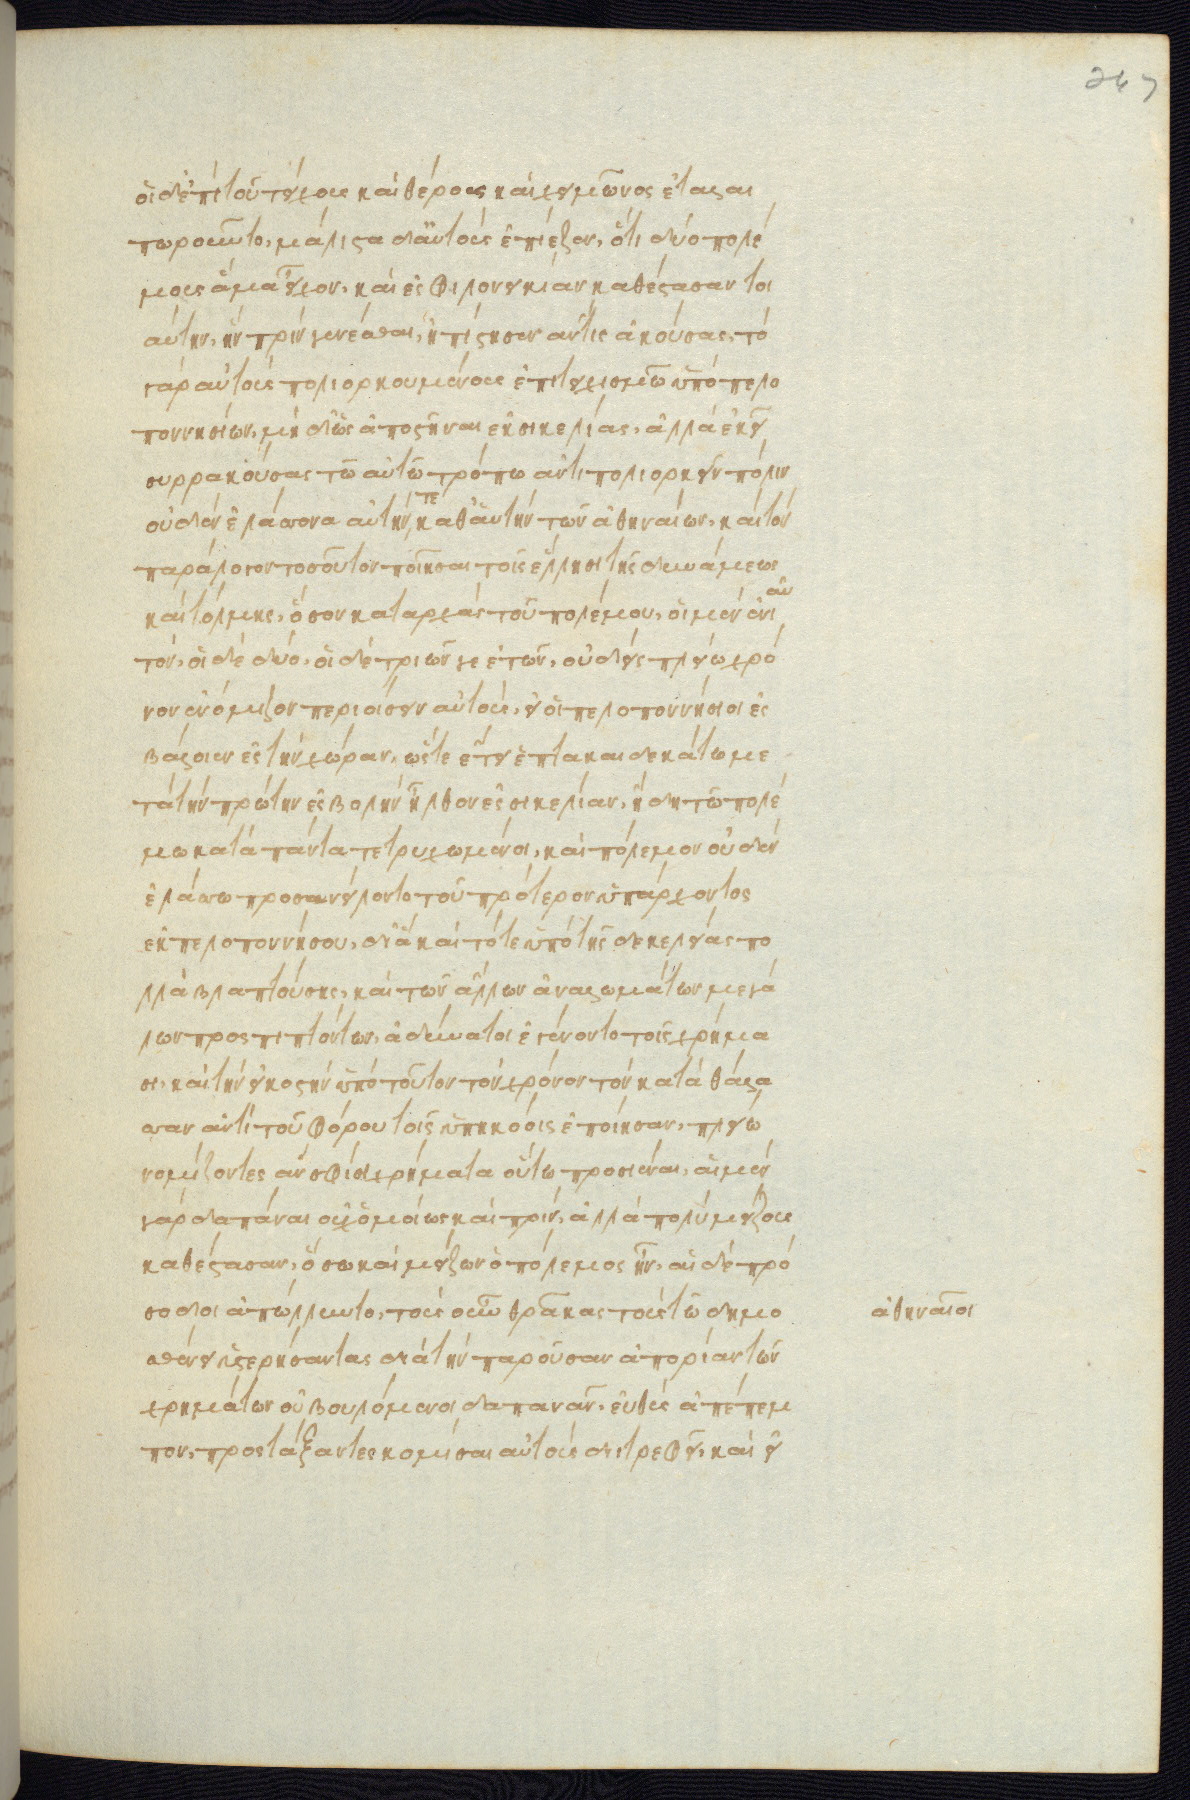 267
οἱ δ' ἐπὶ τοῦ τείχους καὶ θέρους καὶ χειμῶνος ἐταλαι
πωροῦντο, μάλιστα δ' αὐτοὺς ἐπίεζεν, ὅτι δύο πολέ
μους ἅμα εἶχον, καὶ ἐς φιλονεικίαν καθέστασαν τοι
αύτην, ἣν πρὶν γενέσθαι, ἠπίστησεν ἄν τις ἀκούσας, τὸ
γὰρ αὐτοὺς πολιορκουμένους ἐπιτειχισμῶ ὑπὸ πελο
ποννησίων, μὴ δ' ὣς ἀποστῆναι ἐκ σικελίας, ἀλλὰ ἐκεῖ
συρρακούσας τῶ αὐτῶ τρόπω ἀντιπολιορκεῖν πόλιν
οὐδὲν ἐλάσσονα αὐτήν τε καθ' αὑτὴν τῶν ἀθηναίων, καὶ τὸν
παράλογον τοσοῦτον ποιῆσαι τοῖς ἕλλησι τῆς δυνάμεως
καὶ τόλμης, ὅσον κατ' ἀρχὰς τοῦ πολέμου, οἱ μὲν ἐνιαυ
τόν, οἱ δὲ δύο, οἱ δὲ τριῶν γε ἐτῶν, οὐδεὶς πλείω χρό
νον ἐνόμιζον περιοίσειν αὐτούς, εἰ οἱ πελοποννήσιοι ἐς
βάλοιεν ἐς τὴν χώραν, ὥστε ἔτει ἑπτακαιδεκάτω με
τὰ τὴν πρώτην ἐσβολὴν ἦλθον ἐς σικελίαν, ἤδη τῶ πολέ
μω κατὰ πάντα τετρυχωμένοι, καὶ πόλεμον οὐδὲν
ἐλάσσω προσανείλοντο τοῦ πρότερον ὑπάρχοντος
ἐκ πελοποννήσου, δι' ἃ καὶ τότε ὑπὸ τῆς δεκελείας πο
λλὰ βλαπτούσης, καὶ τῶν ἄλλων ἀναλωμάτων μεγά
λων προσπιπτόντων, ἀδύνατοι ἐγένοντο τοῖς χρήμα
σι, καὶ τὴν εἰκοστὴν ὑπὸ τοῦτον τὸν χρόνον τὴν κατὰ θάλα
σσαν ἀντὶ τοῦ φόρου τοῖς ὑπηκόοις ἐποίησαν, πλείω
νομίζοντες ἂν σφίσι χρήματα οὕτω προσιέναι, αἱ μὲν
γὰρ δαπάναι οὐχ ὁμοίως καὶ πρίν, ἀλλὰ πολὺ μείζους
καθέστασαν, ὅσω καὶ μείζων ὁ πόλεμος ἦν, αἱ δὲ πρό
σοδοι ἀπώλλυντο, τοὺς οὖν θρᾶκας τοὺς τῶ δημο
σθένει ὑστερήσαντας διὰ τὴν παροῦσαν ἀπορίαν τῶν
χρημάτων οὐ βουλόμενοι δαπανᾶν, εὐθὺς ἀπέπεμ
πον, προστάξαντες κομίσαι αὐτοὺς διιτρεφεῖ, καὶ εἰ
ἀθηναῖοι